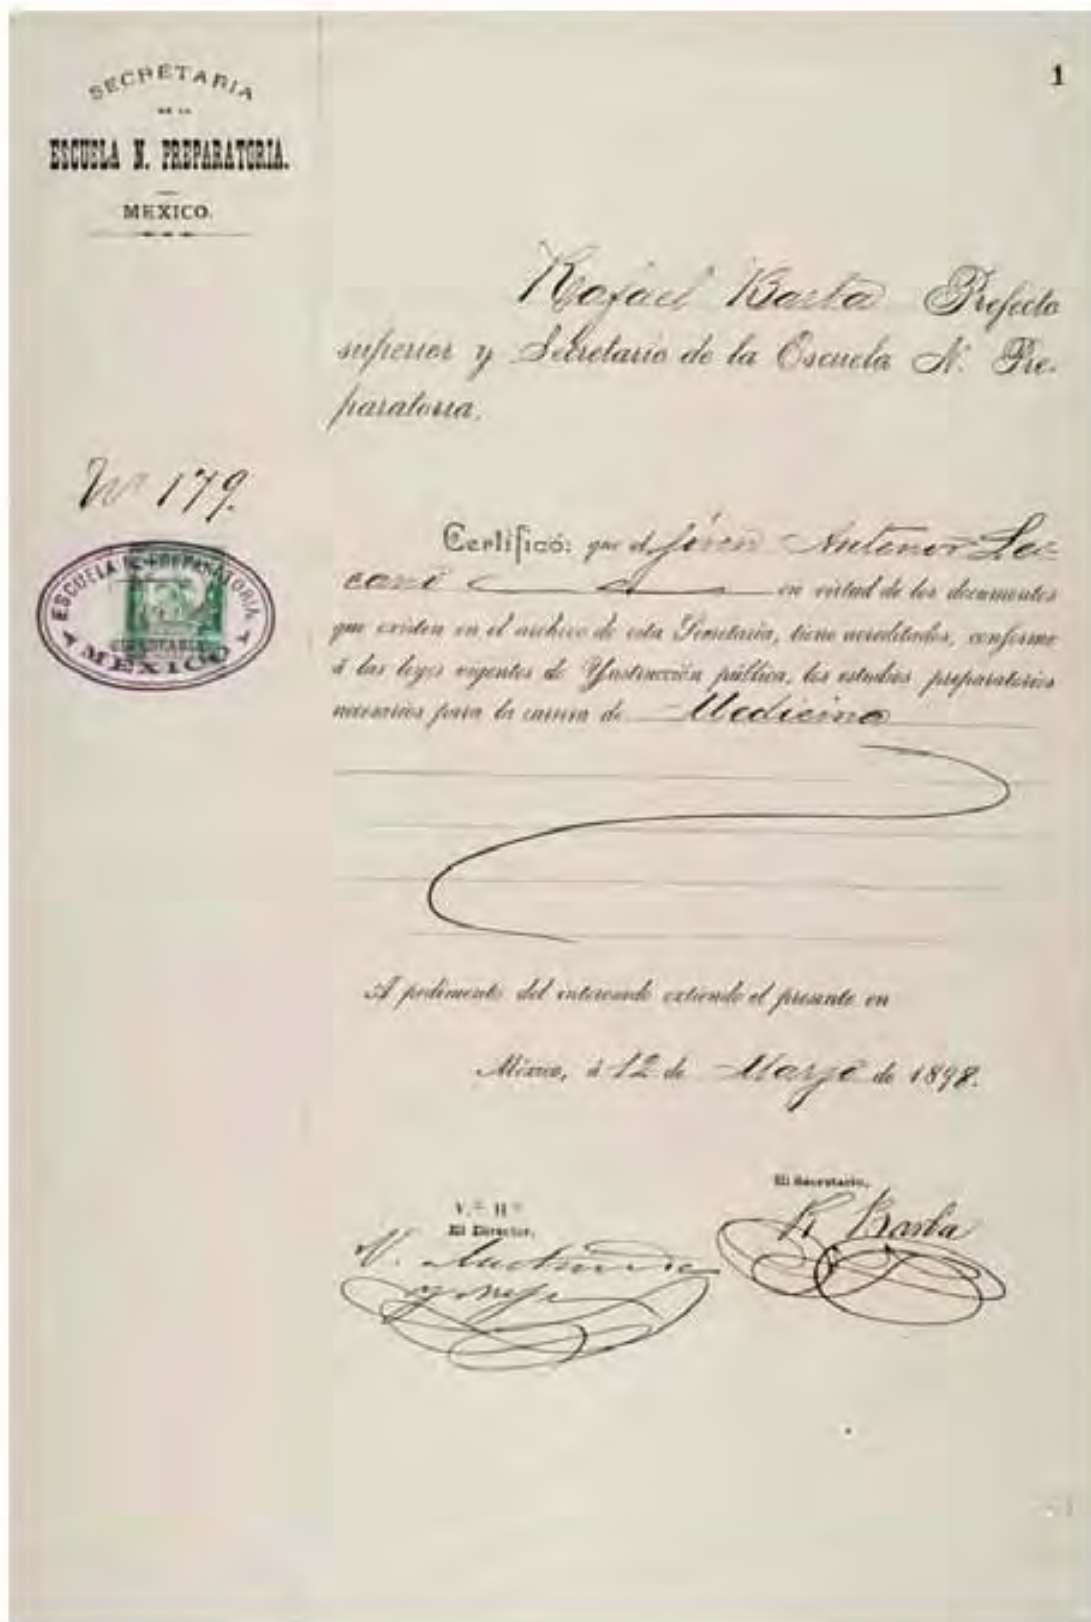 1
SECRETARIA
DE LA
ESCUELA N. PREPARATORIA.
MEXICO.
Rafael Barba Prefecto
superior y Secretario de la Escuela N. Pre-
paratoria.
Nº 179.
ESCUELA N. PREPARATORIA
MEXICO
Certifico: que el jóven Antenor Les-
cano en virtud de los documentos
que existen en el archivo de esta Secretaría, tiene acreditados, conforme
á las leyes vigentes de Ynstrucción pública, los estudios preparatorios
necesarios para la carrera de Medicina
A pedimento del interesado extiendo el presente en
México, á 12 de Marzo de 1898.
El Secretario,
R. Barba
V.º B.º
El Director,
V.